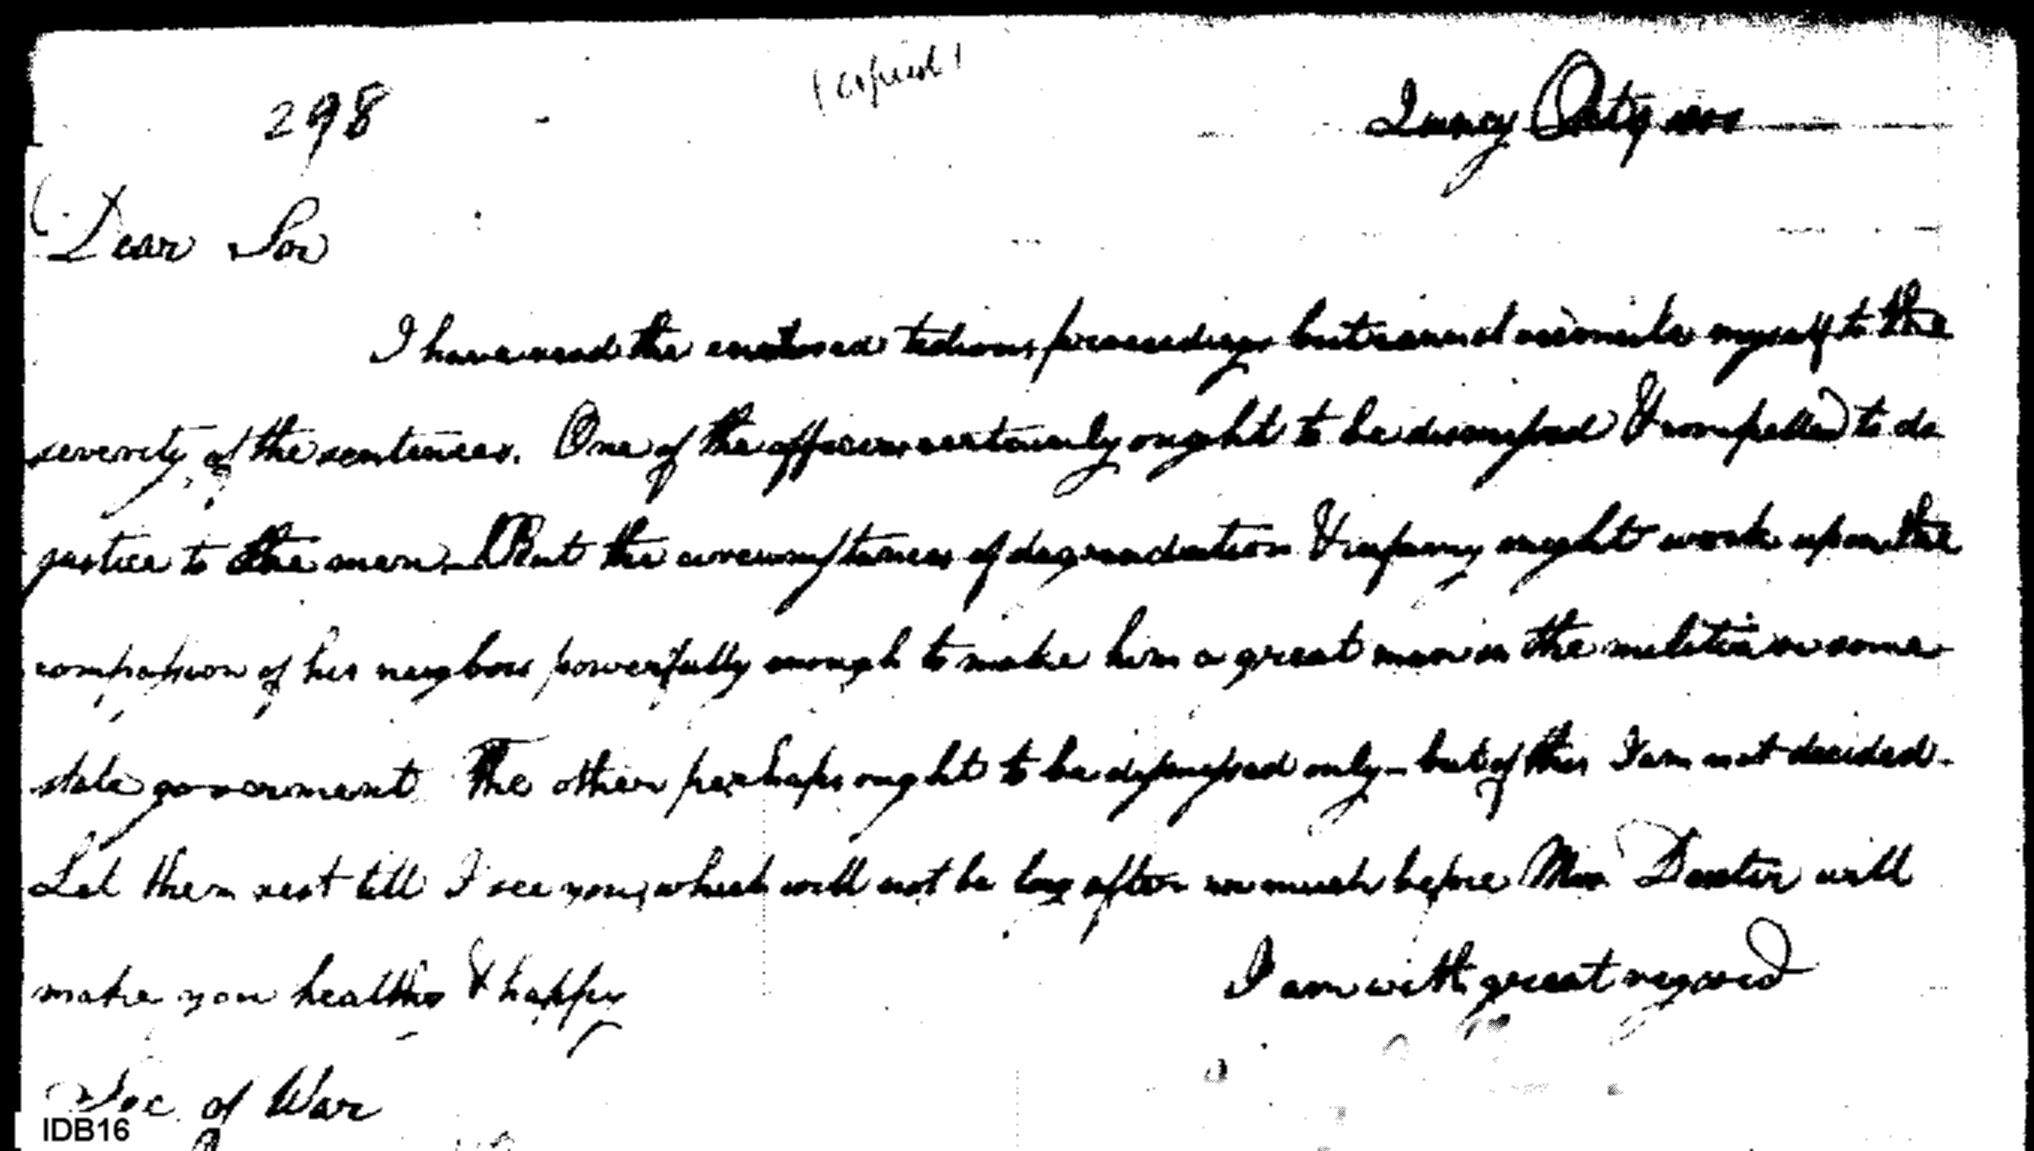 298
(copied)
Quincy Oct 9 1800
Dear Sir
I have read the enclosed tedious proceedings but cannot reconcile myself to the
severity of the sentences. One of the officers certainly ought to be dismissed & compelled to do
justice to the men. But the circumstances of degradation & infamy might work upon the
compassion of his neighbors powerfully enough to make him a great man in the militia or some
state government. The other perhaps ought to be dismissed only - but of this I am not decided.
Let them rest till I see you, which will not be long after or much before Mrs. Dexter will
make you healthy & happy
I am with great regard
Sec. of War
IDB16